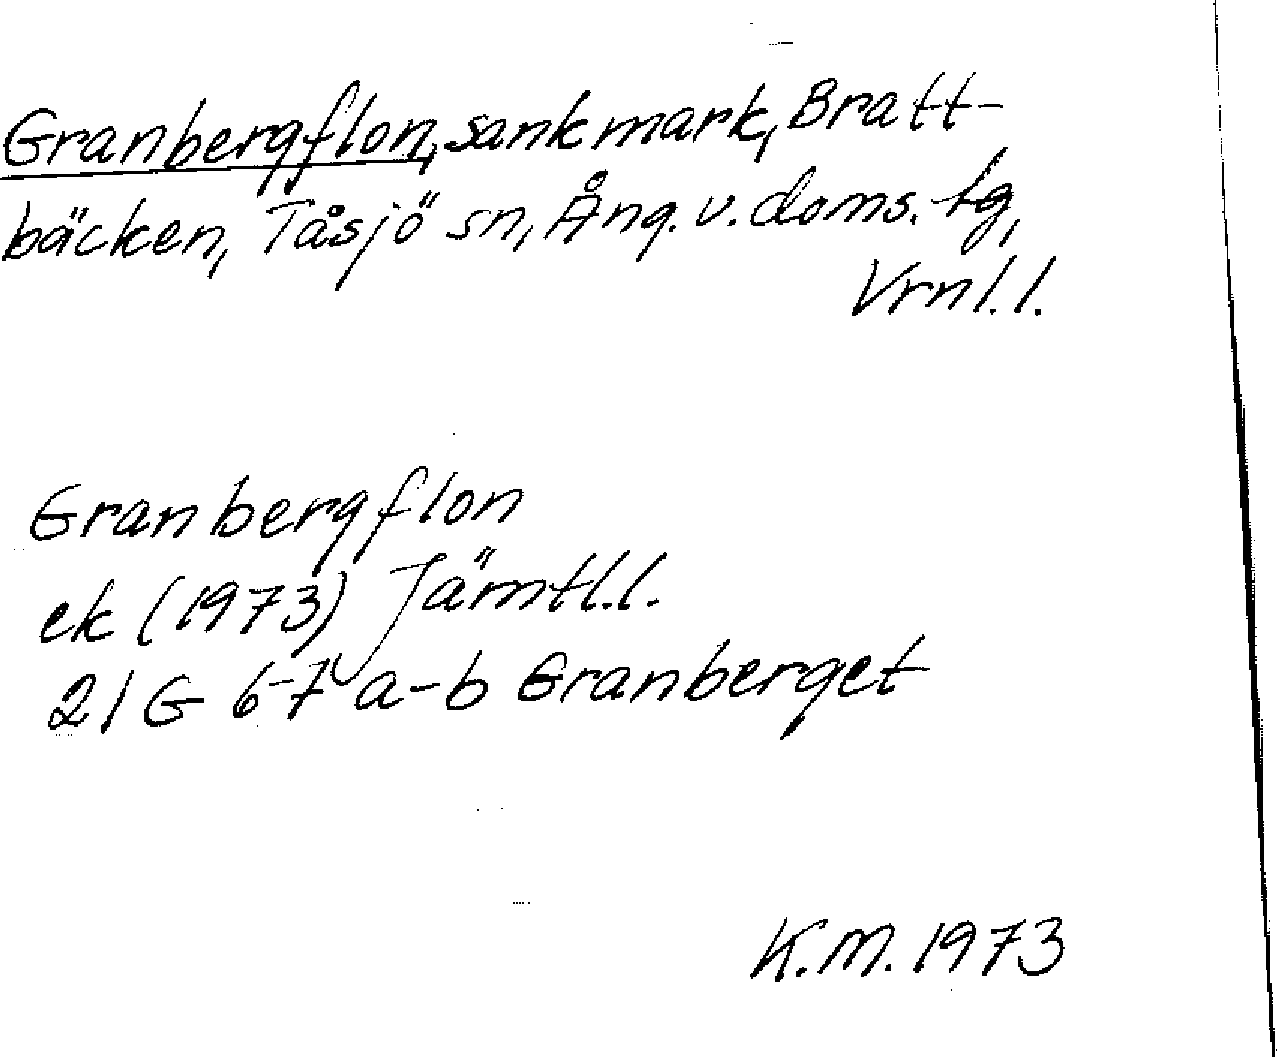 Granbergflon, sankmark, Bratt-
bäcken, Tåsjö sn, Ång. v. doms. tg,
Vrnl. l.
Granbergflon
ek (1973) Jämtl. l.
21G 6-7 a-b Granberget
K.M. 1973